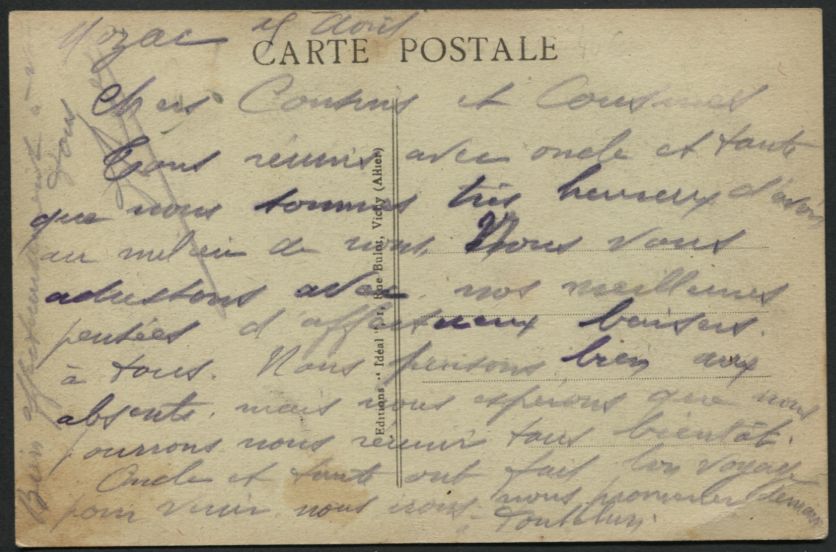 Mozac 15 Août
CARTE POSTALE
Chers Cousins et Cousines
Tous réunis avec oncle et tante
que nous sommes très heureux d'avoir
au milieu de nous. Nous vous
adressons avec nos meilleures
pensées d'affectueux baisers
à tous. Nous pensons bien aux
absents, mais nous espérons que nous
pourrons nous réunir tous bientôt.
Oncle et tante ont fait bon voyage
pour venir. nous irons nous promener demain
à
Bien affectueusement à
tous
Editions "Idéal", Rue Bulot, Vichy (Allier)